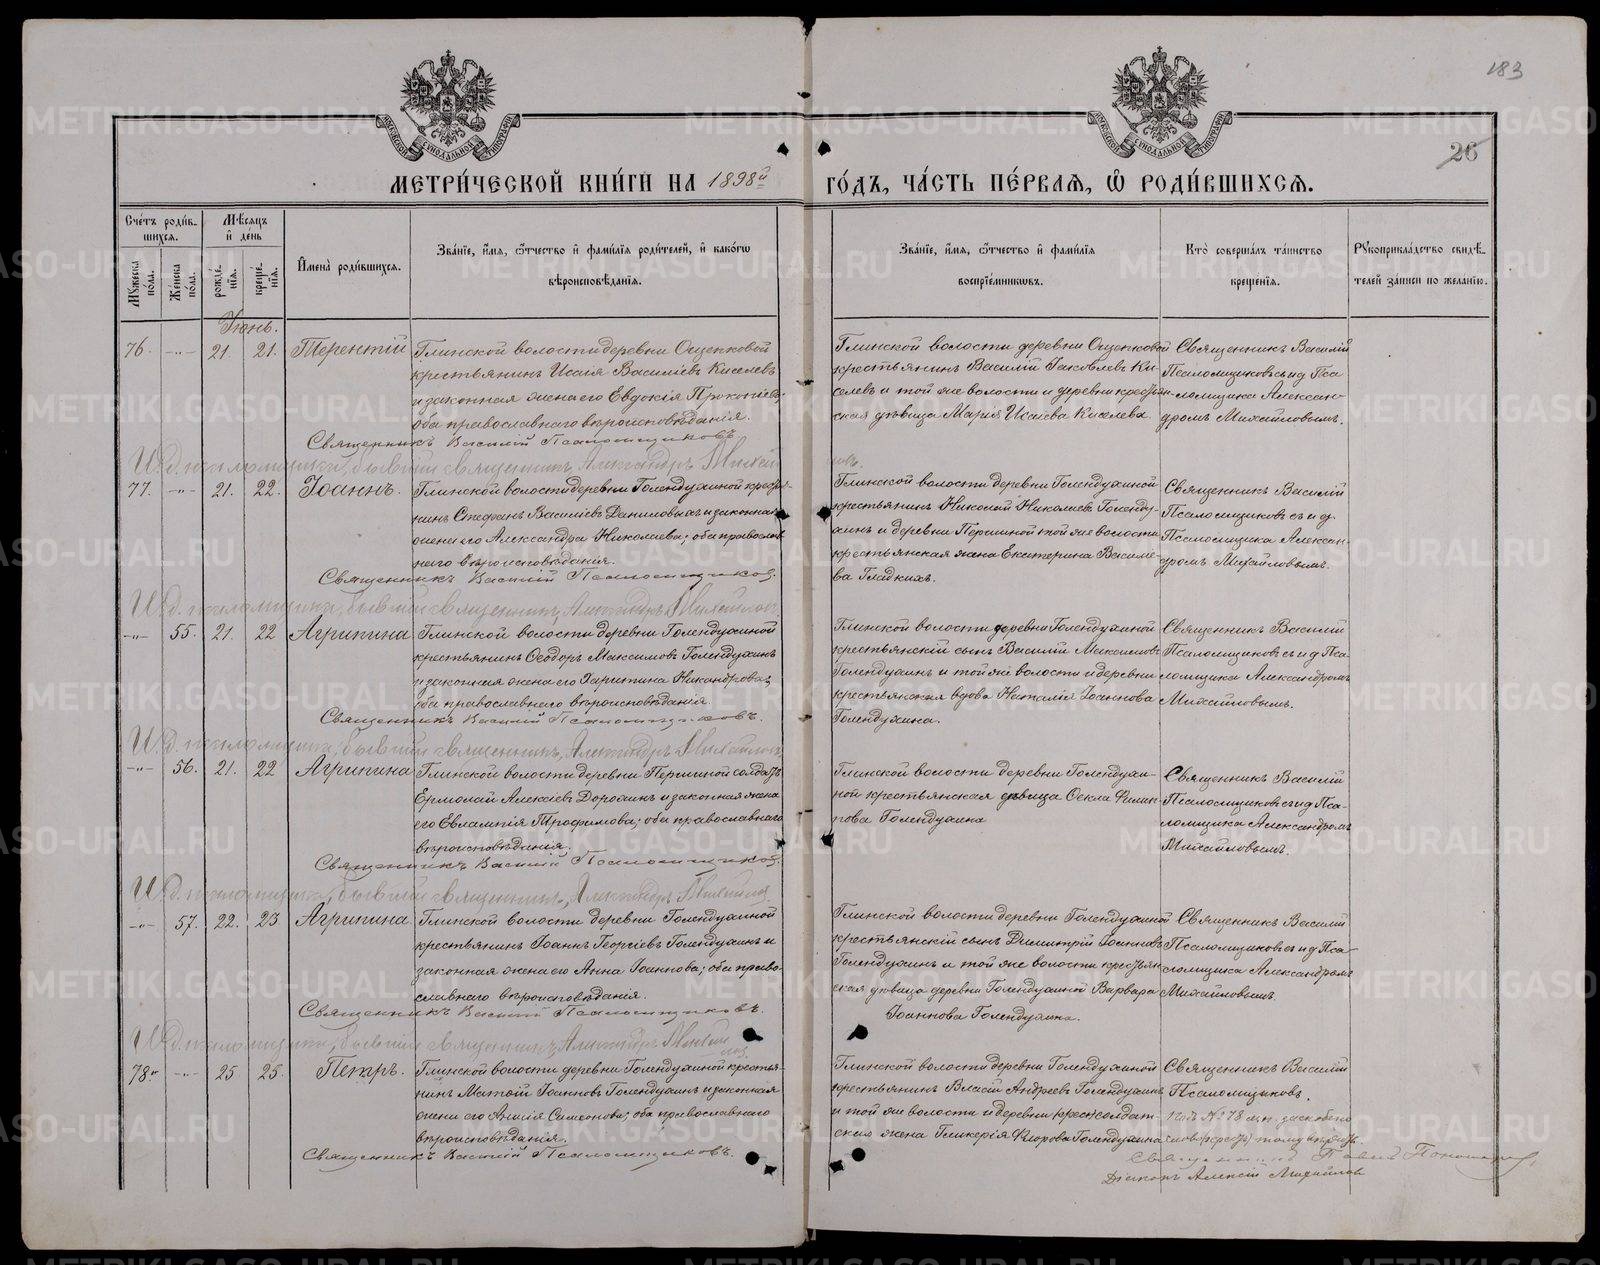 183
26
МЕТРИ́ЧЕСКОЙ КНИ́ГИ НА 1898й ГО́ДЪ, ЧА́СТЬ ПЕ́РВАЯ, Ѡ РОДИ́ВШИХСЯ.
Сче́тъ роди́вшихся.
Му́жеска по́ла.
Же́нска по́ла.
Мѣ́сяцъ и де́нь
рожде́нїя.
креще́нїя.
И҆мена̀ роди́вшихся.
Зва́нїе, и҆́мя, ѻ҆́тчество и҆ фами́лїя роди́телей, и҆ како́гѡ
вѣроисповѣ́данїя.
Зва́нїе, и҆́мя, ѻ҆́тчество и҆ фами́лїя
воспрїе́мниковъ.
Кто̀ соверша́лъ та́инство
креще́нїя.
Рꙋкоприкла́дство свидѣ́телей за́писи по жела́нїю.
Іюнь.
76. -„- 21. 21. Терентій
Глинской волости деревни Ощепковой
крестьянинъ Исаія Василіевъ Киселевъ
и законная жена его Евдокія Прокопіева;
оба православнаго вѣроисповѣданія.
Глинской волости деревни Ощепковой
крестьянинъ Василій Іаковлевъ Ки-
селевъ и той же волости и деревни крестьян-
ская дѣвица Марія Исаіева Киселева
Священникъ Василій
Псаломщиковъ съ и д пса-
ломщика Алексан-
дромъ Михайловымъ.
Священникъ Василій Псаломщиковъ.
И. д. псаломщика, бывшій священникъ, Александръ Михайловъ.
77. -„- 21. 22. Іоаннъ.
Глинской волости деревни Голендухиной крестья-
нинъ Стефанъ Василіевъ Даниловыхъ и законная
жена его Александра Николаева; оба православ-
наго вѣроисповѣданія.
Глинской волости деревни Голендухиной
крестьянинъ Николай Николаевъ Голенду-
хинъ и деревни Першиной той же волости
крестьянская жена Екатерина Василіе-
ва Гладкихъ.
Священникъ Василій
Псаломщиковъ съ и д.
Псаломщика Алексан-
дромъ Михайловымъ.
Священникъ Василій Псаломщиковъ.
И. д. псаломщика, бывшій священникъ, Александръ Михайловъ
-„- 55. 21. 22 Агрипина
Глинской волости деревни Голендухиной
крестьянинъ Ѳеодоръ Максимовъ Голендухинъ
и законная жена его Харитина Никандрова;
оба православнаго вѣроисповѣданія.
Глинской волости деревни Голендухиной
крестьянскій сынъ Василій Максимовъ
Голендухинъ и той же волости и деревни
крестьянская вдова Наталія Іоаннова
Голендухина.
Священникъ Василій
Псаломщиковъ съ и д Пса-
ломщика Александромъ
Михайловымъ.
Священникъ Василій Псаломщиковъ.
И. д. псаломщика, бывшій священникъ, Александръ Михайловъ
-„- 56. 21. 22 Агрипина
Глинской волости деревни Першиной солдатъ
Ермолай Алексіевъ Дорохинъ и законная жена
его Евлампія Трофимова; оба православнаго
вѣроисповѣданія.
Глинской волости деревни Голендухи-
ной крестьянская дѣвица Ѳекла Филип-
пова Голендухина
Священникъ Василій
Псаломщиковъ съ и д Пса-
ломщика Александромъ
Михайловымъ.
Священникъ Василій Псаломщиковъ.
И. д. псаломщика, бывшій священникъ, Александръ Михайловъ
-„- 57. 22. 23 Агрипина
Глинской волости деревни Голендухиной
крестьянинъ Іоаннъ Георгіевъ Голендухинъ и
законная жена его Анна Іоаннова; оба право-
славнаго вѣроисповѣданія.
Глинской волости деревни Голендухиной
крестьянскій сынъ Димитрій Іоанновъ
Голендухинъ и той же волости крестьян-
ская дѣвица деревни Голендухиной Варвара
Іоаннова Голендухина.
Священникъ Василій
Псаломщиковъ съ и д Пса-
ломщика Александромъ
Михайловымъ.
Священникъ Василій Псаломщиковъ.
И. д. псаломщика, бывшій священникъ, Александръ Михайловъ.
78. -„- 25. 25. Петръ.
Глинской волости деревни Голендухиной крестья-
нинъ Матѳій Іоанновъ Голендухинъ и законная
жена его Анисія Симеонова; оба православнаго
вѣроисповѣданія.
Глинской волости деревни Голендухиной
крестьянинъ Власій Андреевъ Голендухинъ
и той же волости и деревни (крест) солдат-
ская жена Гликерія Флорова Голендухина
Священникъ Василій
Псаломщиковъ.
Священникъ Василій Псаломщиковъ.
Священникъ Павелъ Пономаревъ,
Діаконъ Алексій Михайловъ
METRIKI.GASO-URAL.RU